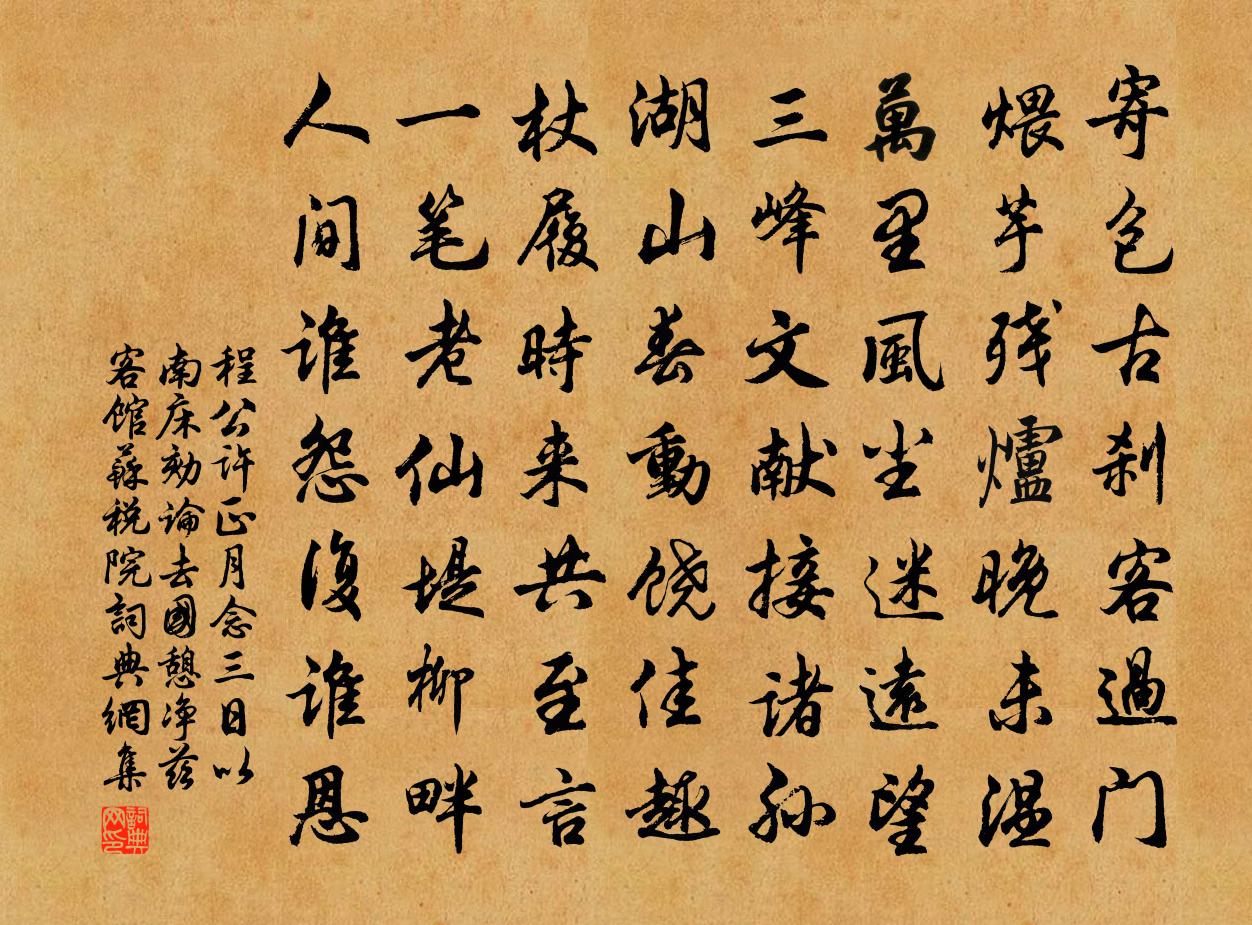 寄包古刹客過门
煨芋残爐晚未温
萬里風尘迷遠望
三峰文献接诸孙
湖山春動饶佳趣
杖履時来共至言
一笔老仙堤柳畔
人间谁怨復谁恩
程公许正月念三日以
南床劾論去國憩净慈
客馆蘇税院詞典網集
詞典网印